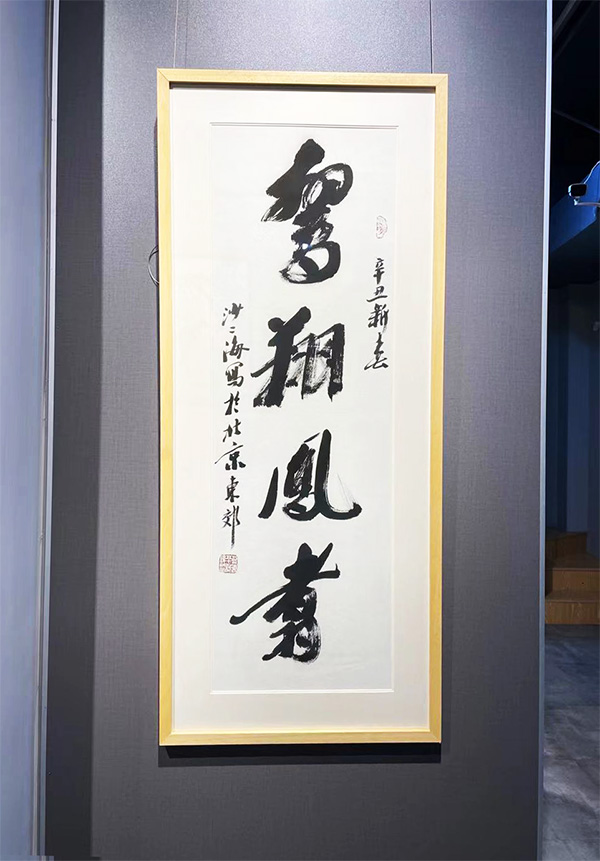 辛丑新春
鸞翔鳳翥
沙二海寫於北京東郊